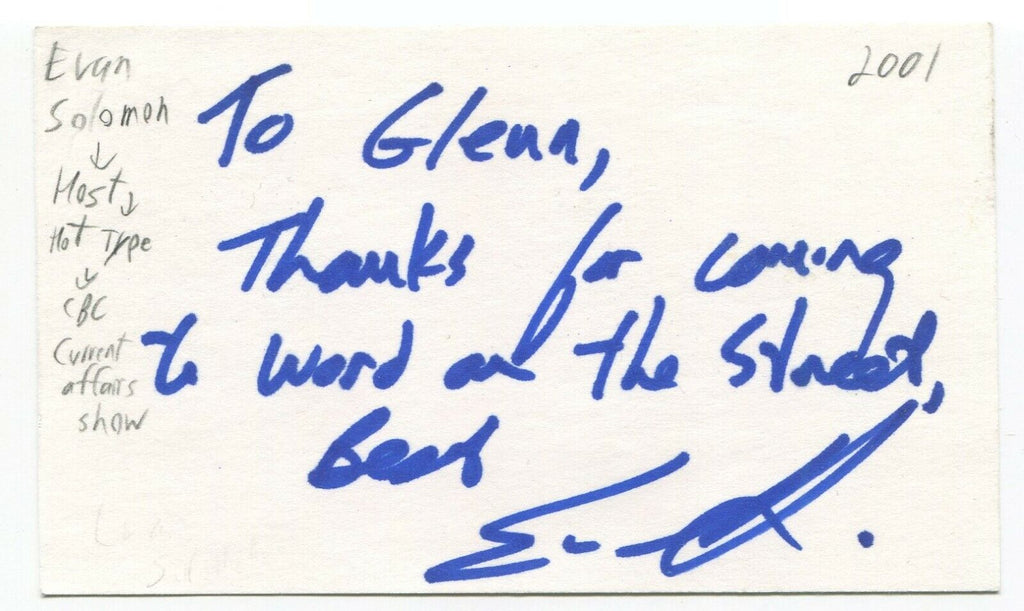 Evan
Solomon
↓
Host ↓
Hot Type
↓
CBC
Current
affairs
show
2001
To Glenn,
Thanks for coming
to word on the Street,
Best